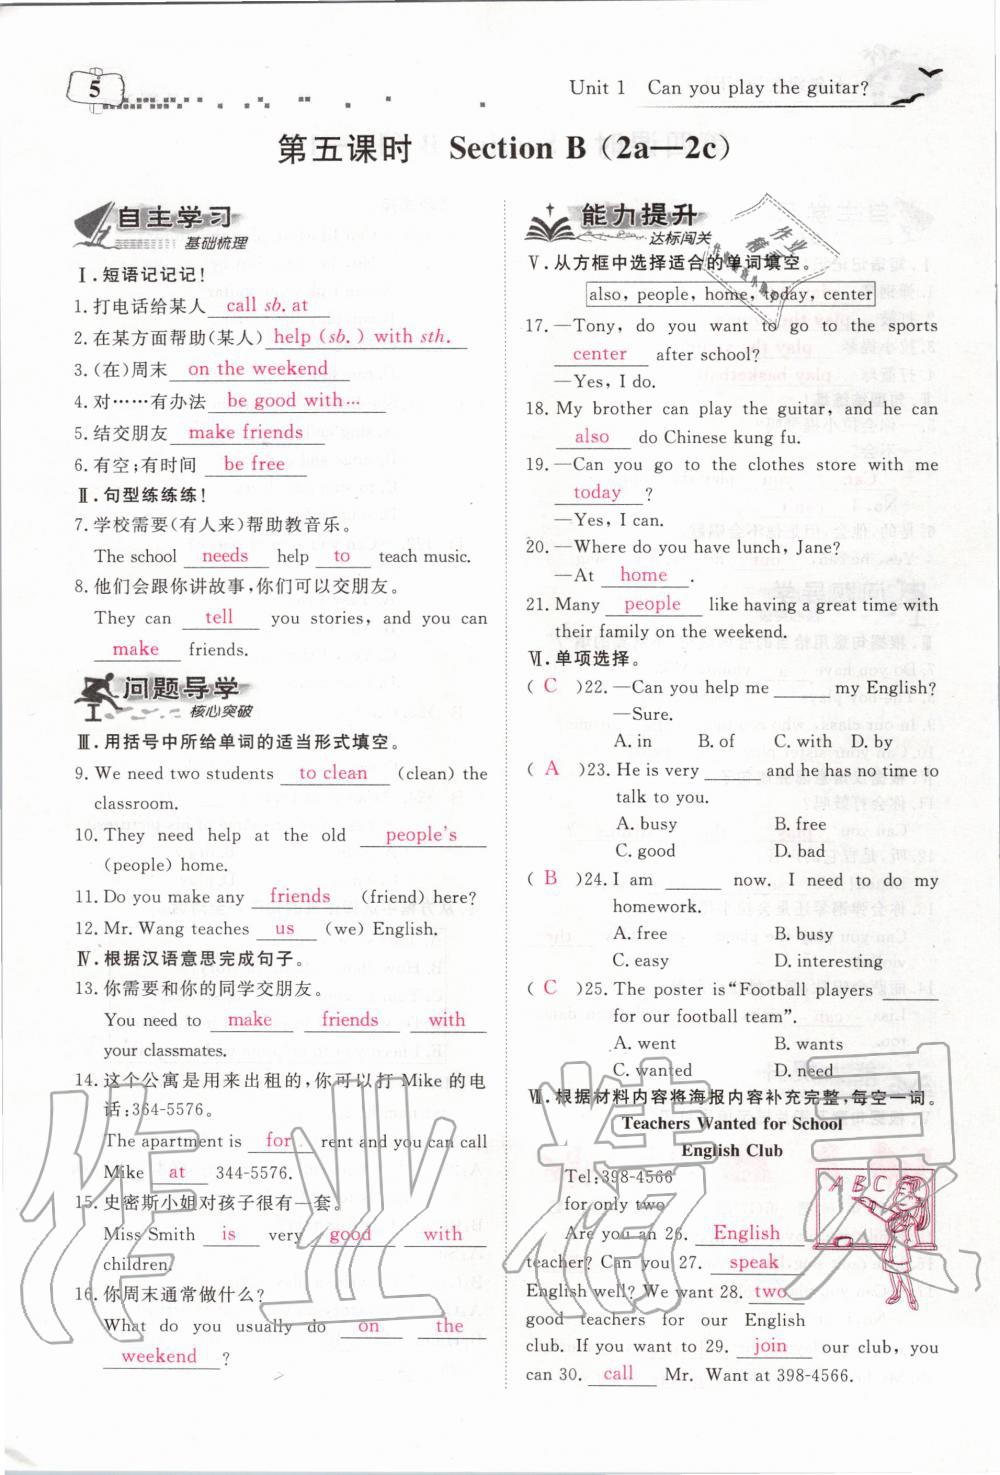 5
Unit 1 Can you play the guitar?
第五课时 Section B (2a—2c)
自主学习
基础梳理
Ⅰ.短语记记记!
1.打电话给某人 call sb. at
2.在某方面帮助(某人) help (sb.) with sth.
3.(在)周末 on the weekend
4.对……有办法 be good with…
5.结交朋友 make friends
6.有空;有时间 be free
Ⅱ.句型练练练!
7.学校需要(有人来)帮助教音乐。
The school needs help to teach music.
8.他们会跟你讲故事,你们可以交朋友。
They can tell you stories, and you can
make friends.
问题导学
核心突破
Ⅲ.用括号中所给单词的适当形式填空。
9. We need two students to clean (clean) the
classroom.
10. They need help at the old people's
(people) home.
11. Do you make any friends (friend) here?
12. Mr. Wang teaches us (we) English.
Ⅳ.根据汉语意思完成句子。
13.你需要和你的同学交朋友。
You need to make friends with
your classmates.
14.这个公寓是用来出租的,你可以打 Mike 的电
话:364-5576。
The apartment is for rent and you can call
Mike at 344-5576.
15.史密斯小姐对孩子很有一套。
Miss Smith is very good with
children.
16.你周末通常做什么?
What do you usually do on the
weekend ?
能力提升
达标闯关
Ⅴ.从方框中选择适合的单词填空。
also, people, home, today, center
17. —Tony, do you want to go to the sports
center after school?
—Yes, I do.
18. My brother can play the guitar, and he can
also do Chinese kung fu.
19. —Can you go to the clothes store with me
today ?
—Yes, I can.
20. —Where do you have lunch, Jane?
—At home .
21. Many people like having a great time with
their family on the weekend.
Ⅵ.单项选择。
( C )22. —Can you help me ______ my English?
—Sure.
A. in B. of C. with D. by
( A )23. He is very ______ and he has no time to
talk to you.
A. busy B. free
C. good D. bad
( B )24. I am ______ now. I need to do my
homework.
A. free B. busy
C. easy D. interesting
( C )25. The poster is "Football players ______
for our football team".
A. went B. wants
C. wanted D. need
Ⅶ.根据材料内容将海报内容补充完整,每空一词。
Teachers Wanted for School
English Club
Tel:398-4566
for only two
Are you an 26. English
teacher? Can you 27. speak
English well? We want 28. two
good teachers for our English
club. If you want to 29. join our club, you
can 30. call Mr. Want at 398-4566.
A B C
作业精灵